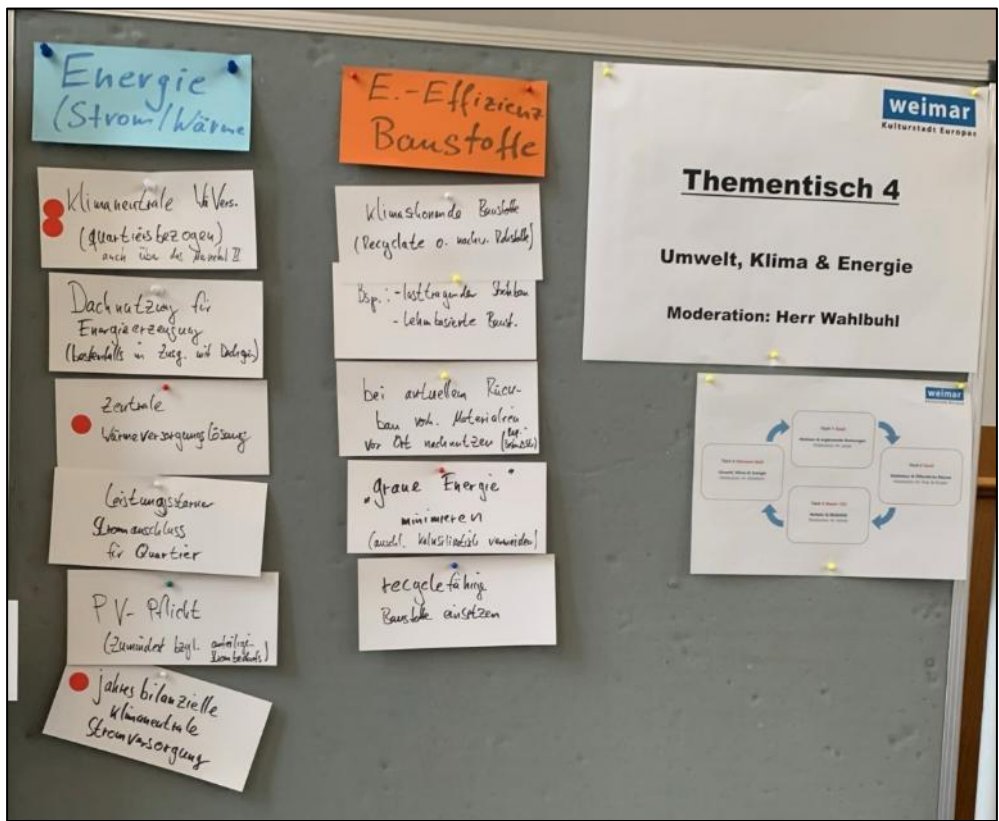 Energie
(Strom/Wärme
Klimaneutrale WäVers.
(quartiersbezogen)
auch über das Quartal II
Dachnutzung für
Energieerzeugung
(bestenfalls in Zusg. mit Dachgrün)
zentrale
Wärmeversorgungslösung
Leistungsstarker
Stromanschluss
für Quartier
PV-Pflicht
(Zumindest bzgl. anteilige
Strombedarfs)
jahresbilanzielle
Klimaneutrale
Stromversorgung
E.-Effizienz
Baustoffe
Klimaschonende Baustoffe
(Recyclate o. nachw. Rohstoffe)
Bsp.: - lasttragender Strohbau
- Lehmbasierte Baust.
bei aktuellem Rück-
bau vorh. Materialien
vor Ort nachnutzen (Bsp.
"graue Energie"
minimieren
recyclefähige
Baustoffe einsetzen
weimar
Kulturstadt Europas
Thementisch 4
Umwelt, Klima & Energie
Moderation: Herr Wahlbuhl
weimar